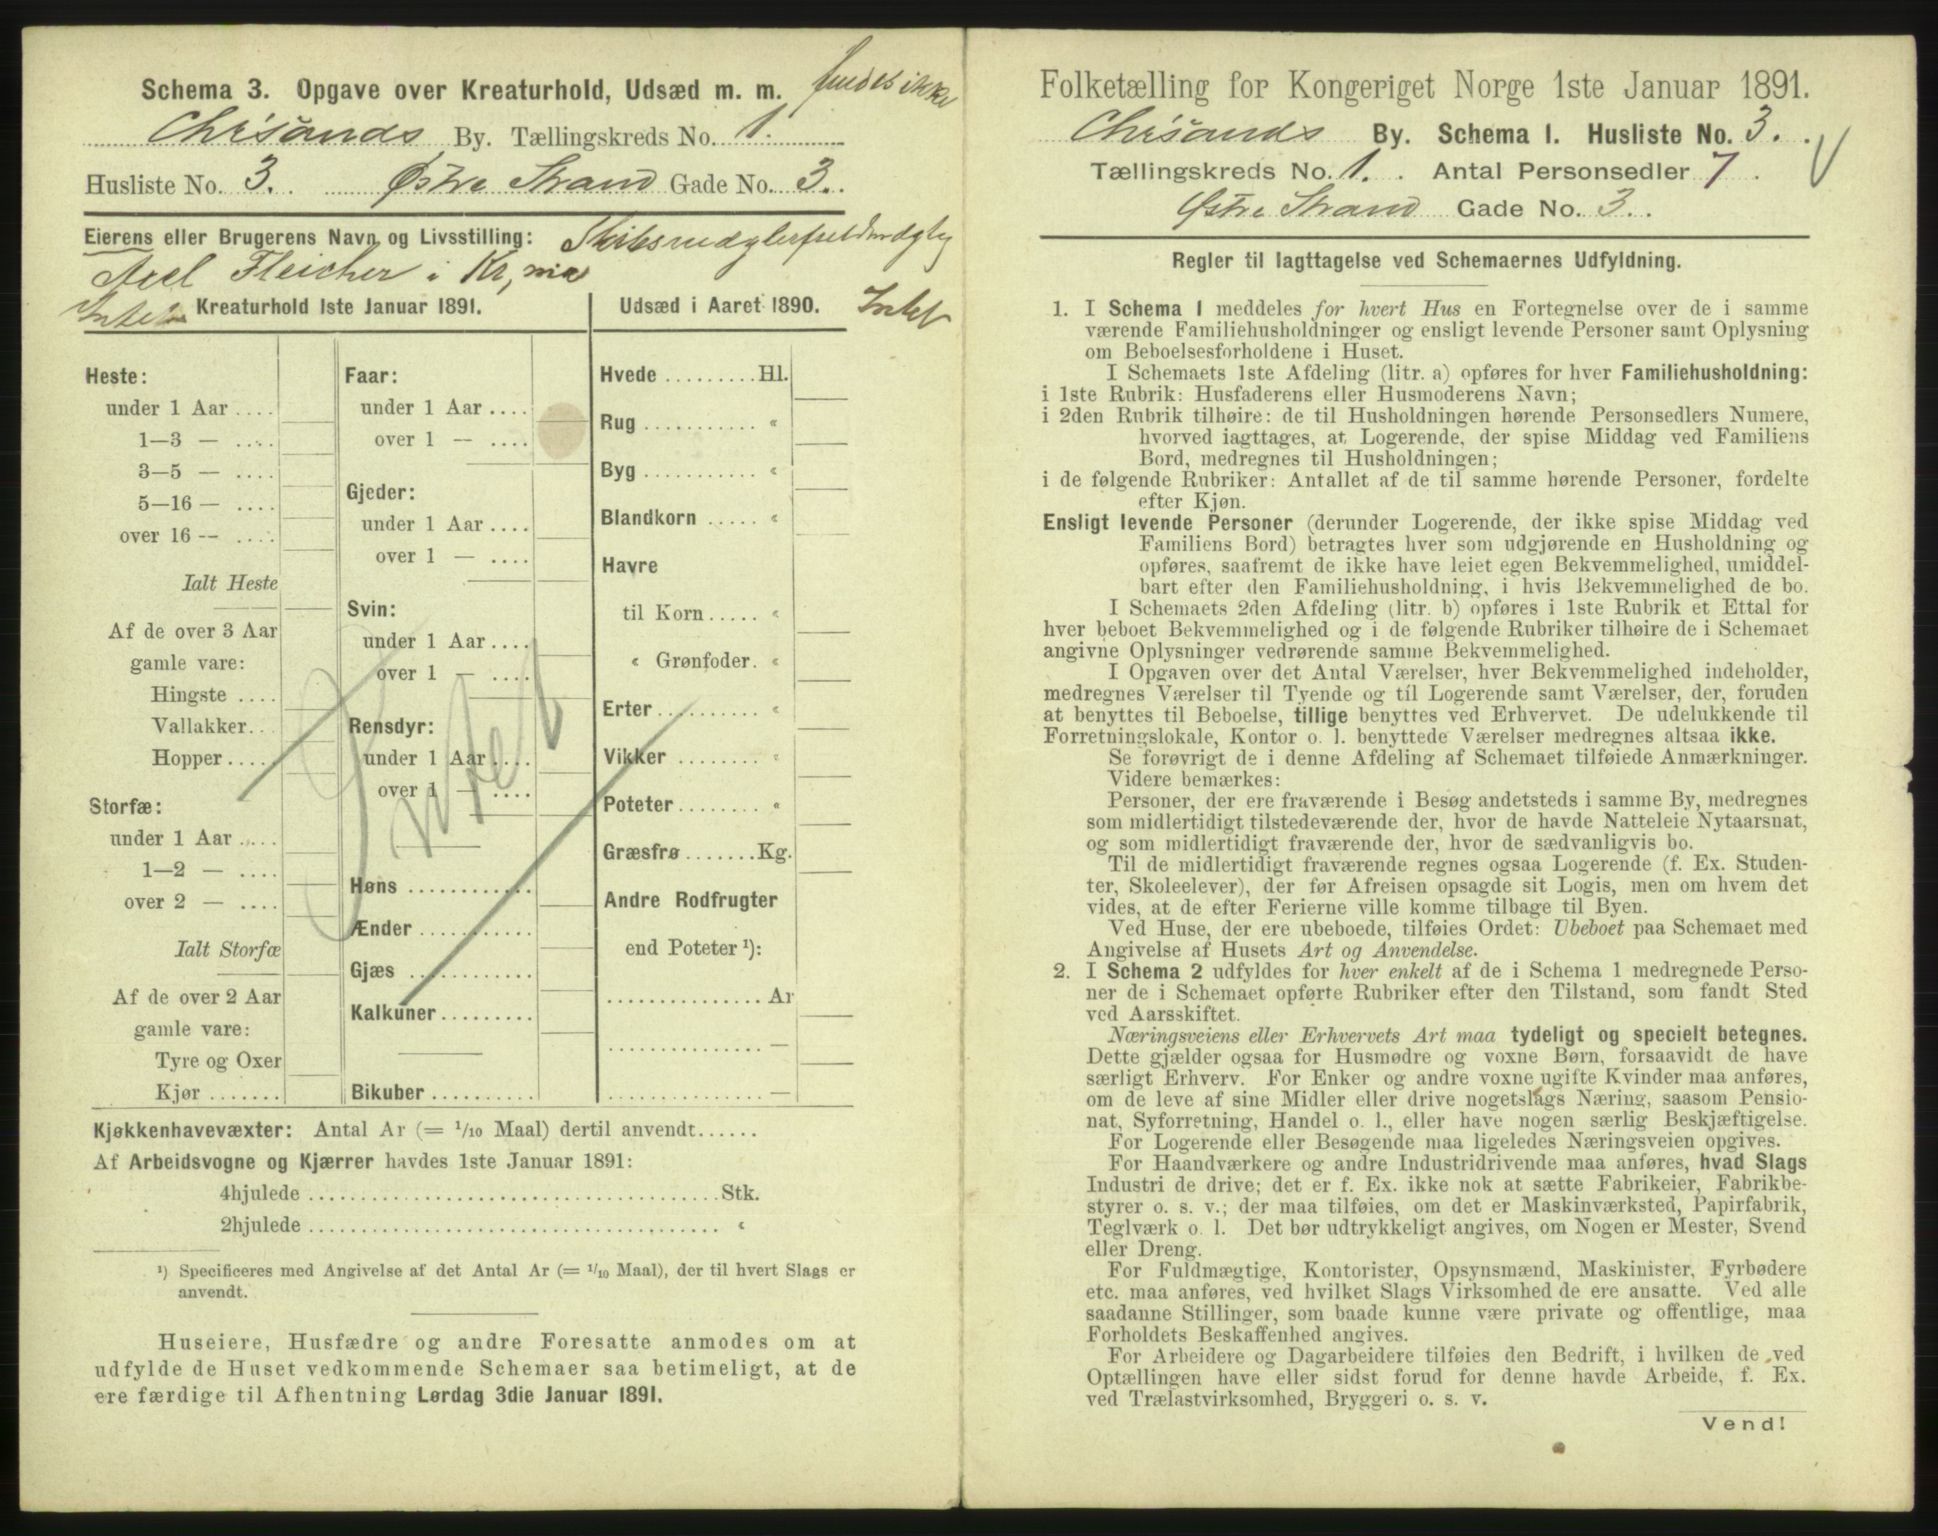 Schema 3. Opgave over Kreaturhold, Udsæd m. m. findes ikke
Chrsands By. Tællingskreds No. 1.
Husliste No. 3. Østre Strand Gade No. 3.
Eierens eller Brugerens Navn og Livsstilling:
Axel Fleicher i Kr,nia
Intet Kreaturhold 1ste Januar 1891.
Udsæd i Aaret 1890. Intet
Heste:
under 1 Aar ....
1—3 — ....
3—5 — ....
5—16 — ....
over 16 — ....
Ialt Heste
Af de over 3 Aar
gamle vare:
Hingste ....
Vallakker...
Hopper .....
Storfæ:
under 1 Aar ....
1—2 — ....
over 2 — ....
Ialt Storfæ
Af de over 2 Aar
gamle vare:
Tyre og Oxer
Kjør .......
Faar:
under 1 Aar ....
over 1 — ....
Gjeder:
under 1 Aar ....
over 1 — ....
Svin:
under 1 Aar ....
over 1 — ....
Rensdyr:
under 1 Aar ....
over 1 — ....
Intet
Høns ...........
Ænder ..........
Gjæs ...........
Kalkuner ........
Bikuber .........
Hvede ......... Hl.
Rug ........... «
Byg ........... «
Blandkorn ..... «
Havre
til Korn ..... «
« Grønfoder. «
Erter .......... «
Vikker ........ «
Poteter ........ «
Græsfrø ....... Kg.
Andre Rodfrugter
end Poteter ¹):
............... Ar
............... —
............... —
Kjøkkenhavevæxter: Antal Ar (= 1/10 Maal) dertil anvendt......
Af Arbeidsvogne og Kjærrer havdes 1ste Januar 1891:
4hjulede ........................................ Stk.
2hjulede ........................................ «
¹) Specificeres med Angivelse af det Antal Ar (= 1/10 Maal), der til hvert Slags er
anvendt.
Huseiere, Husfædre og andre Foresatte anmodes om at
udfylde de Huset vedkommende Schemaer saa betimeligt, at de
ere færdige til Afhentning Lørdag 3die Januar 1891.
Folketælling for Kongeriget Norge 1ste Januar 1891.
Chrsands By. Schema 1. Husliste No. 3.
Tællingskreds No. 1. Antal Personsedler 7.
Østre Strand Gade No. 3.
Regler til Iagttagelse ved Schemaernes Udfyldning.
1. I Schema 1 meddeles for hvert Hus en Fortegnelse over de i samme
værende Familiehusholdninger og ensligt levende Personer samt Oplysning
om Beboelsesforholdene i Huset.
I Schemaets 1ste Afdeling (litr. a) opføres for hver Familiehusholdning:
i 1ste Rubrik: Husfaderens eller Husmoderens Navn;
i 2den Rubrik tilhøire: de til Husholdningen hørende Personsedlers Numere,
hvorved iagttages, at Logerende, der spise Middag ved Familiens
Bord, medregnes til Husholdningen;
i de følgende Rubriker: Antallet af de til samme hørende Personer, fordelte
efter Kjøn.
Ensligt levende Personer (derunder Logerende, der ikke spise Middag ved
Familiens Bord) betragtes hver som udgjørende en Husholdning og
opføres, saafremt de ikke have leiet egen Bekvemmelighed, umiddel-
bart efter den Familiehusholdning, i hvis Bekvemmelighed de bo.
I Schemaets 2den Afdeling (litr. b) opføres i 1ste Rubrik et Ettal for
hver beboet Bekvemmelighed og i de følgende Rubriker tilhøire de i Schemaet
angivne Oplysninger vedrørende samme Bekvemmelighed.
I Opgaven over det Antal Værelser, hver Bekvemmelighed indeholder,
medregnes Værelser til Tyende og til Logerende samt Værelser, der, foruden
at benyttes til Beboelse, tillige benyttes ved Erhvervet. De udelukkende til
Forretningslokale, Kontor o. l. benyttede Værelser medregnes altsaa ikke.
Se forøvrigt de i denne Afdeling af Schemaet tilføiede Anmærkninger.
Videre bemærkes:
Personer, der ere fraværende i Besøg andetsteds i samme By, medregnes
som midlertidigt tilstedeværende der, hvor de havde Natteleie Nytaarsnat,
og som midlertidigt fraværende der, hvor de sædvanligvis bo.
Til de midlertidigt fraværende regnes ogsaa Logerende (f. Ex. Studen-
ter, Skoleelever), der før Afreisen opsagde sit Logis, men om hvem det
vides, at de efter Ferierne ville komme tilbage til Byen.
Ved Huse, der ere ubeboede, tilføies Ordet: Ubeboet paa Schemaet med
Angivelse af Husets Art og Anvendelse.
2. I Schema 2 udfyldes for hver enkelt af de i Schema 1 medregnede Perso-
ner de i Schemaet opførte Rubriker efter den Tilstand, som fandt Sted
ved Aarsskiftet.
Næringsveiens eller Erhvervets Art maa tydeligt og specielt betegnes.
Dette gjælder ogsaa for Husmødre og voxne Børn, forsaavidt de have
særligt Erhverv. For Enker og andre voxne ugifte Kvinder maa anføres,
om de leve af sine Midler eller drive nogetslags Næring, saasom Pensio-
nat, Syforretning, Handel o. l., eller have nogen særlig Beskjæftigelse.
For Logerende eller Besøgende maa ligeledes Næringsveien opgives.
For Haandværkere og andre Industridrivende maa anføres, hvad Slags
Industri de drive; det er f. Ex. ikke nok at sætte Fabrikeier, Fabrikbe-
styrer o. s. v.; der maa tilføies, om det er Maskinværksted, Papirfabrik,
Teglværk o. l. Det bør udtrykkeligt angives, om Nogen er Mester, Svend
eller Dreng.
For Fuldmægtige, Kontorister, Opsynsmænd, Maskinister, Fyrbødere
etc. maa anføres, ved hvilket Slags Virksomhed de ere ansatte. Ved alle
saadanne Stillinger, som baade kunne være private og offentlige, maa
Forholdets Beskaffenhed angives.
For Arbeidere og Dagarbeidere tilføies den Bedrift, i hvilken de ved
Optællingen have eller sidst forud for denne havde Arbeide, f. Ex.
ved Trælastvirksomhed, Bryggeri o. s. v.
Vend!